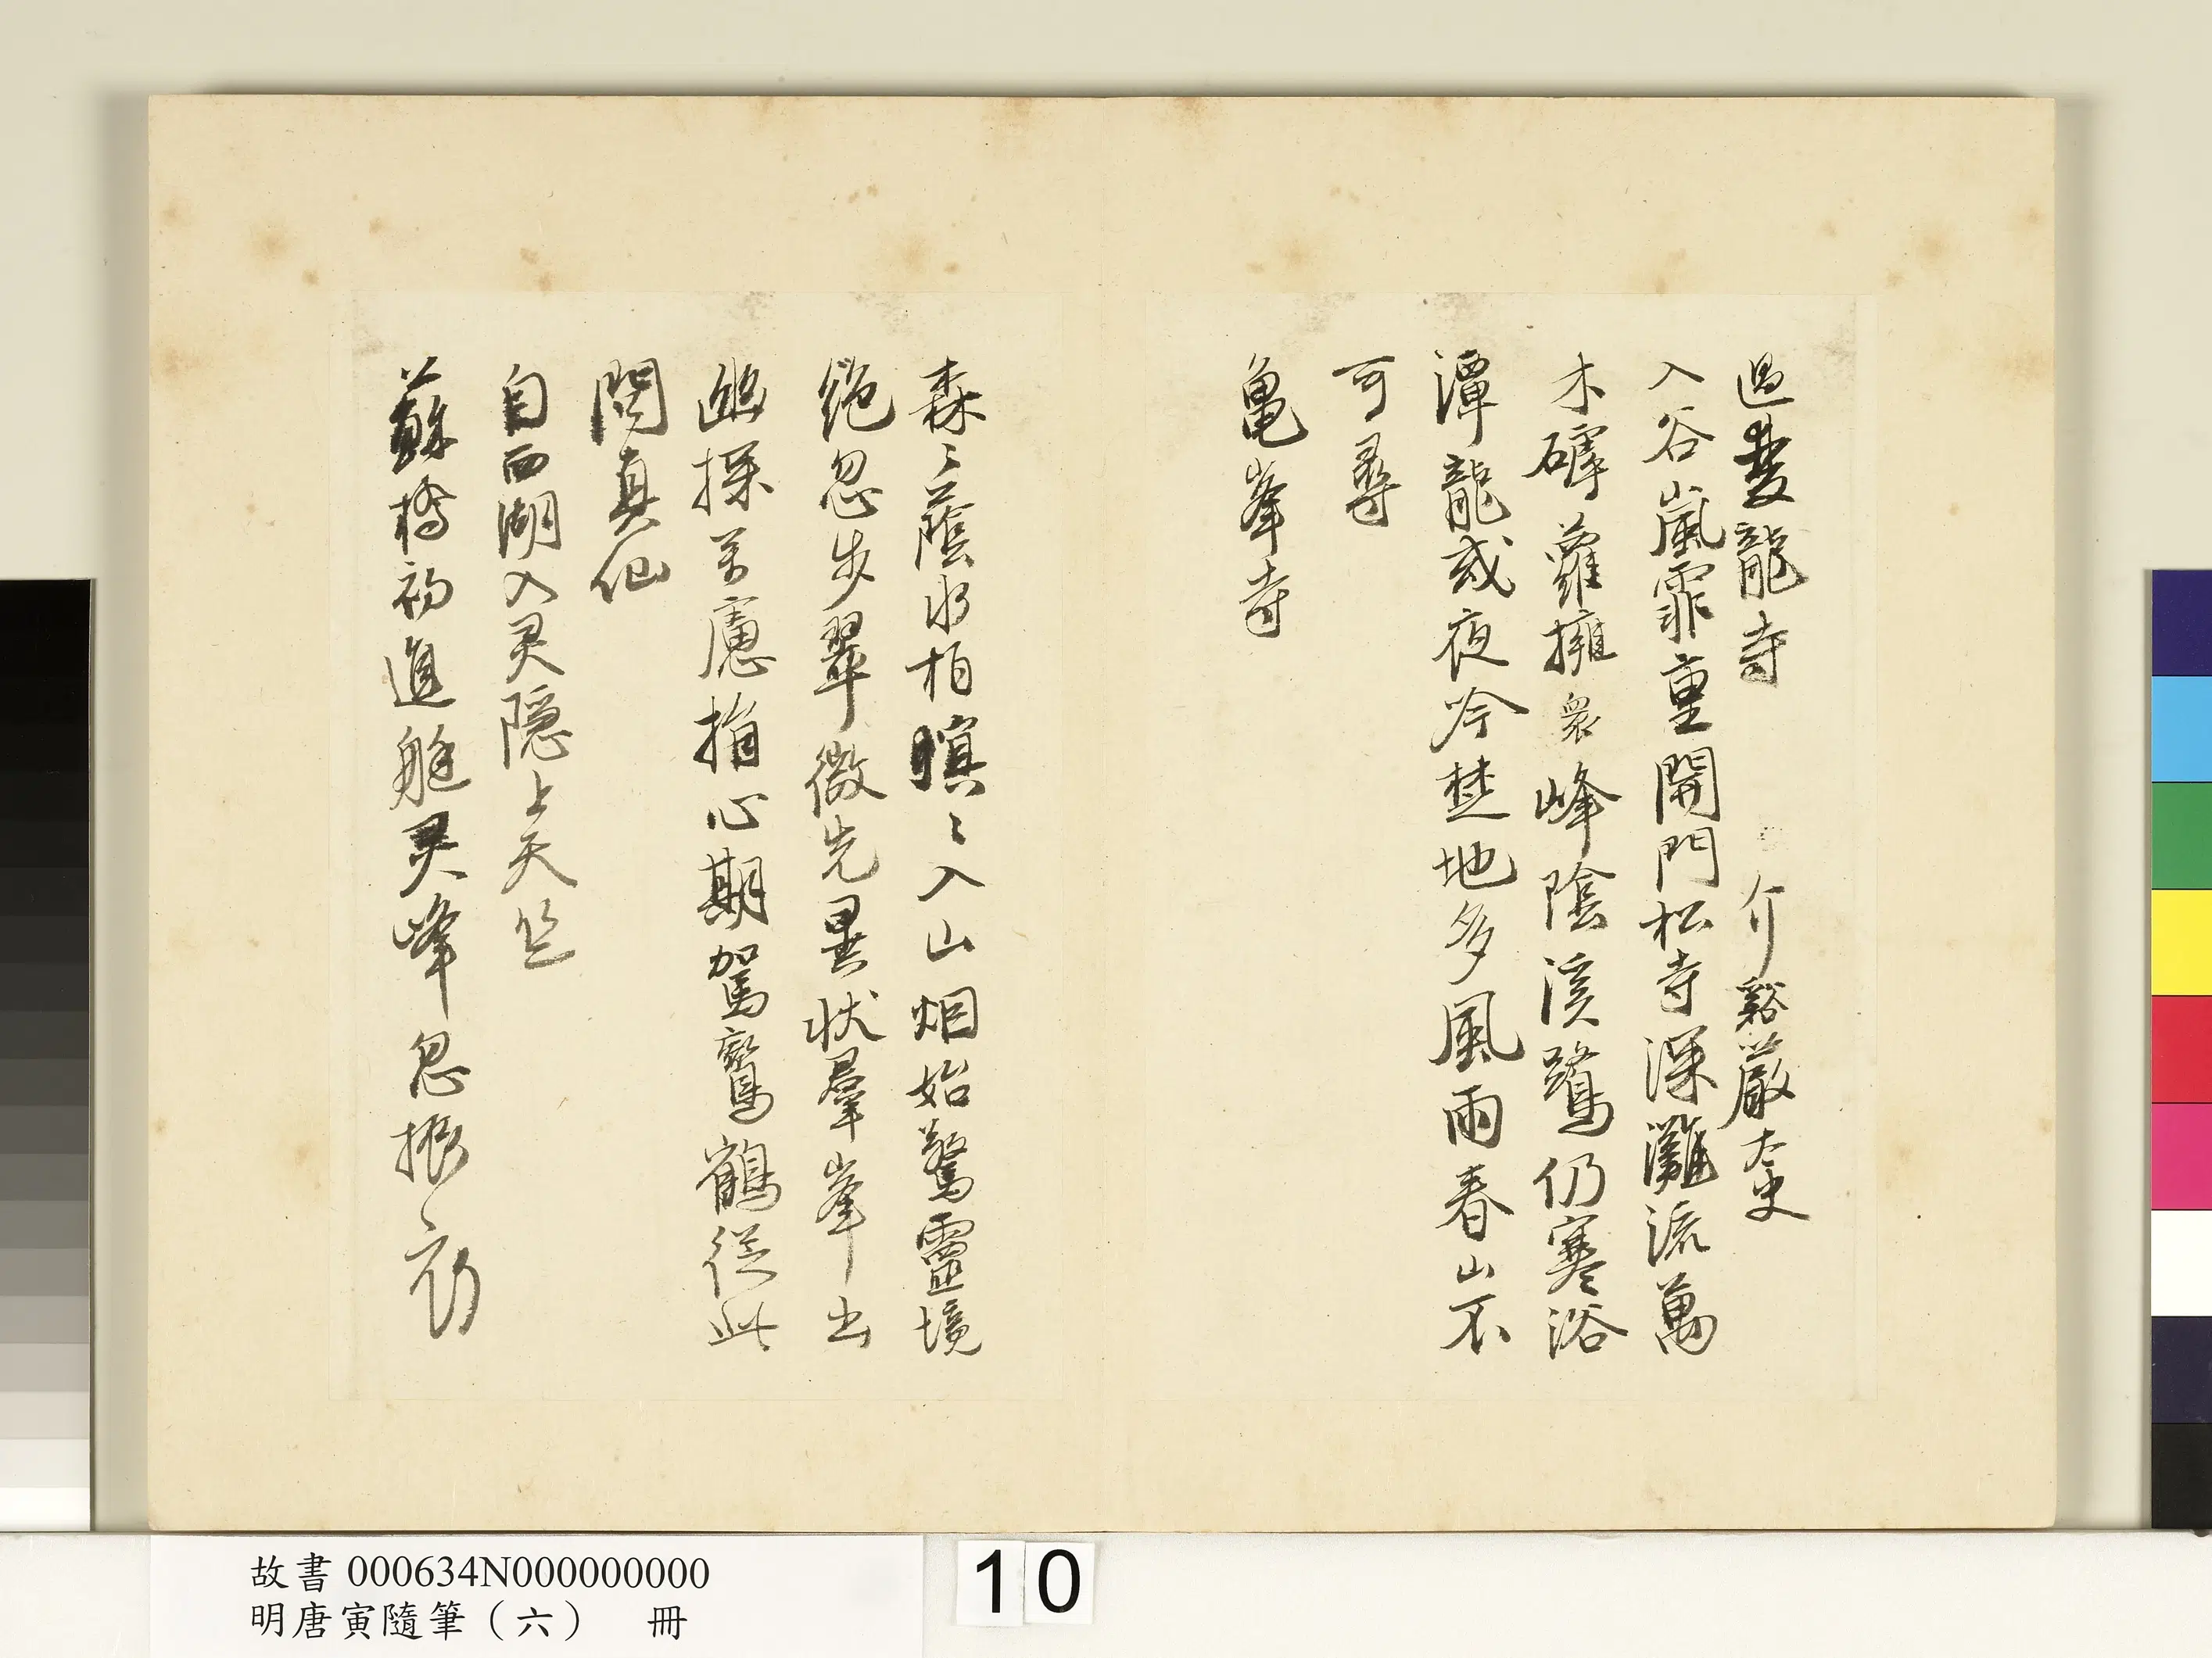 過雙龍寺 介谿嚴太史
入谷嵐霏重開門松寺深灘流萬
木罅蘿擁衆峰陰溪鷺仍寒浴
潭龍或夜吟楚地多風雨春山不
可尋
龜峯寺
森〻蔭水柏暝〻入山烟始驚靈境
絕忽步翠微先異狀羣峯出
幽探萬慮捐心期駕鸞鶴從此
問真仙
自西湖入灵隠上天竺
蘇橋初進艇灵峰忽振衣
故書 000634N000000000
明唐寅隨筆（六） 冊
10